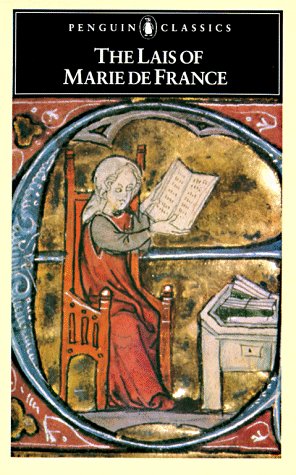 PENGUIN CLASSICS
THE LAIS OF
MARIE DE FRANCE